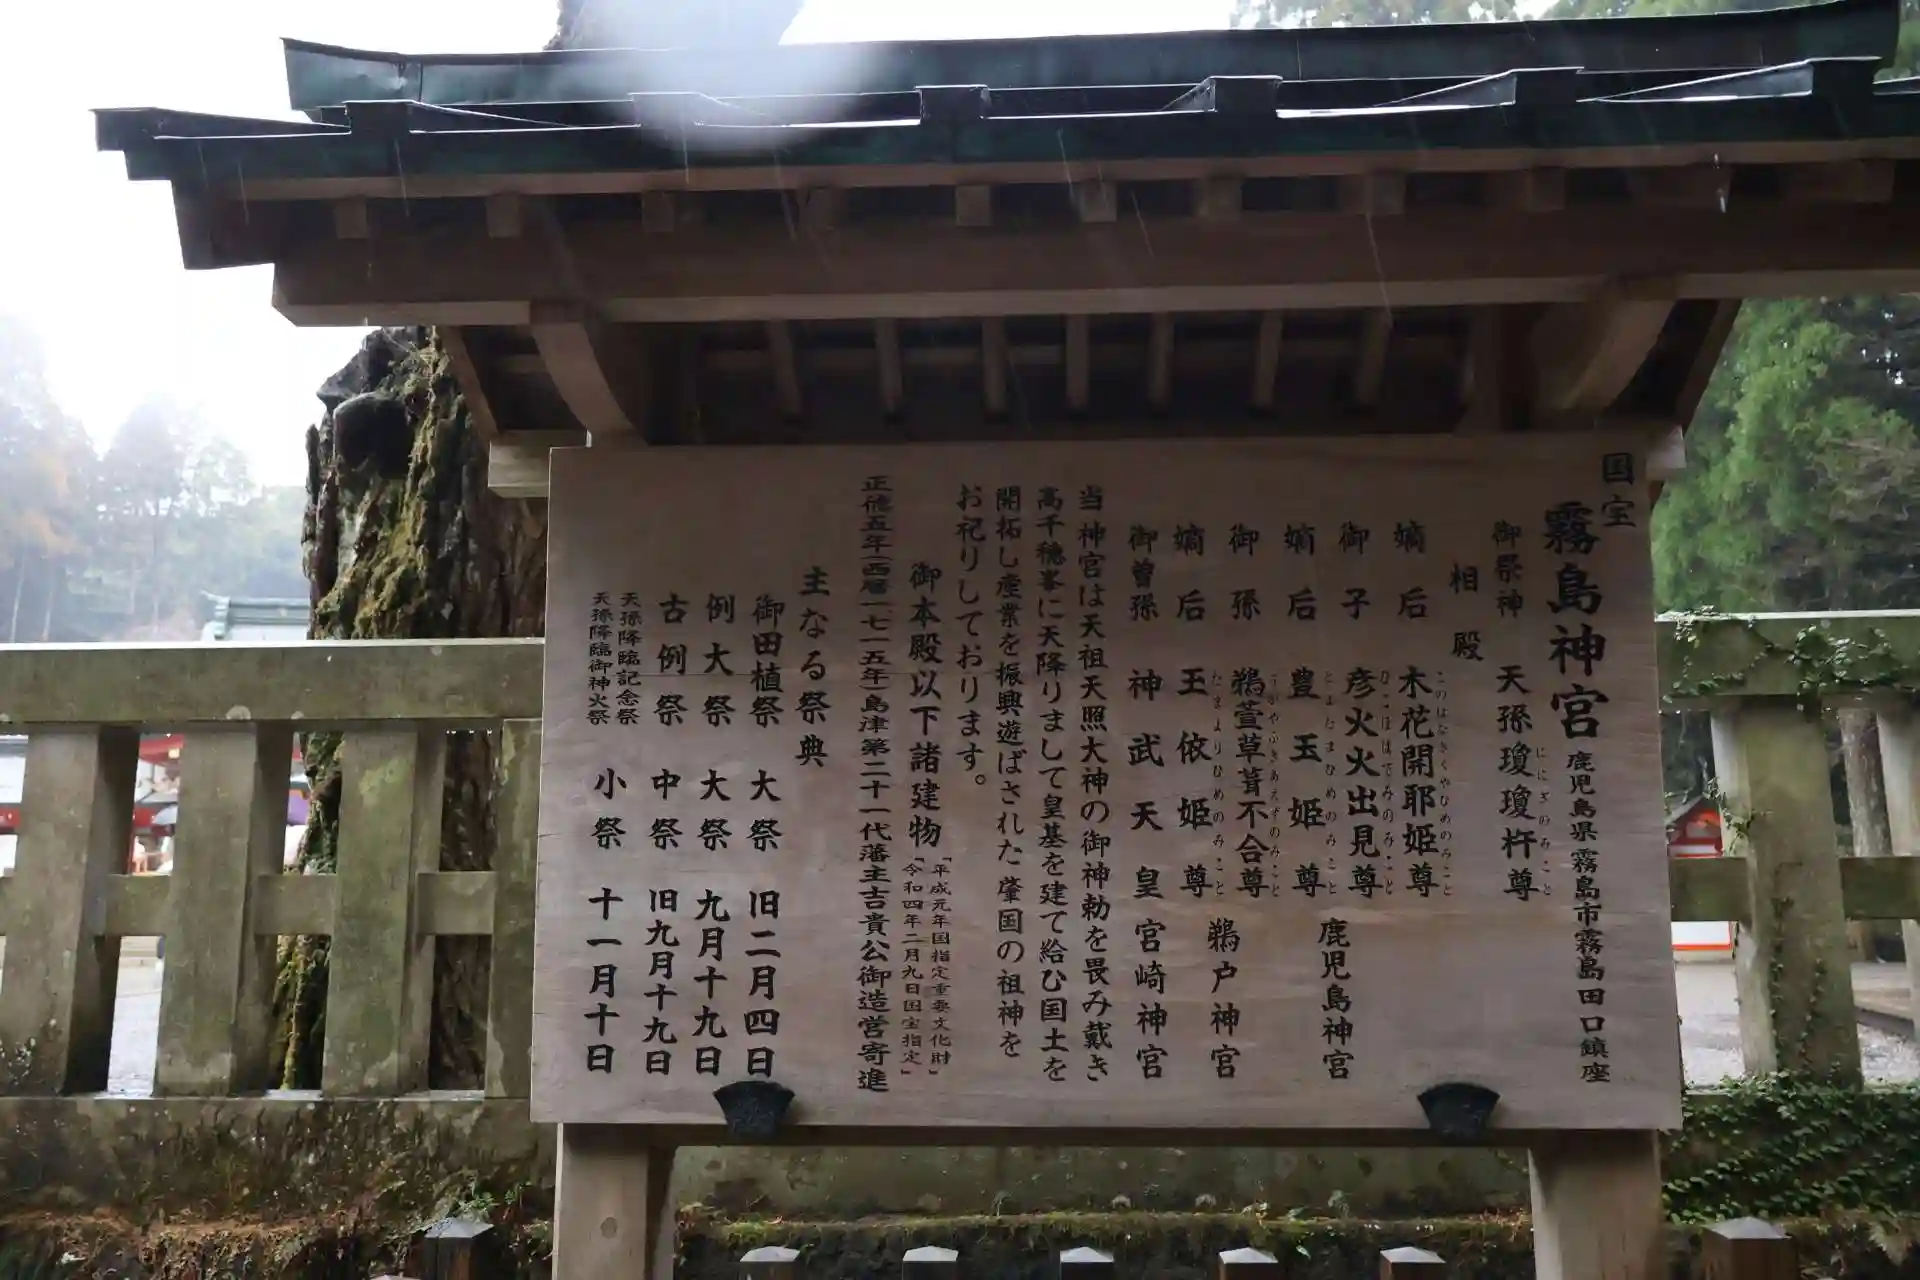 国宝
霧島神宮 鹿児島県霧島市霧島田口鎮座
御祭神 天孫瓊瓊杵尊
ににぎのみこと
相殿
嫡后 木花開耶姫尊
このはなさくやひめのみこと
御子 彦火火出見尊 鹿児島神宮
ひこほほでみのみこと
嫡后 豊玉姫尊
とよたまひめのみこと
御孫 鵜萱草葺不合尊 鵜戸神宮
うがやふきあえずのみこと
嫡后 玉依姫尊
たまよりひめのみこと
御曽孫 神武天皇 宮崎神宮
当神宮は天祖天照大神の御神勅を畏み戴き
高千穂峯に天降りまして皇基を建て給ひ国土を
開拓し産業を振興遊ばされた肇国の祖神を
お祀りしております。
御本殿以下諸建物
「平成元年国指定重要文化財」
「令和四年二月九日国宝指定」
正徳五年(西暦一七一五年)島津第二十一代藩主吉貴公御造営寄進
主なる祭典
御田植祭 大祭 旧二月四日
例大祭 大祭 九月十九日
古例祭 中祭 旧九月十九日
天孫降臨記念祭
天孫降臨御神火祭 小祭 十一月十日